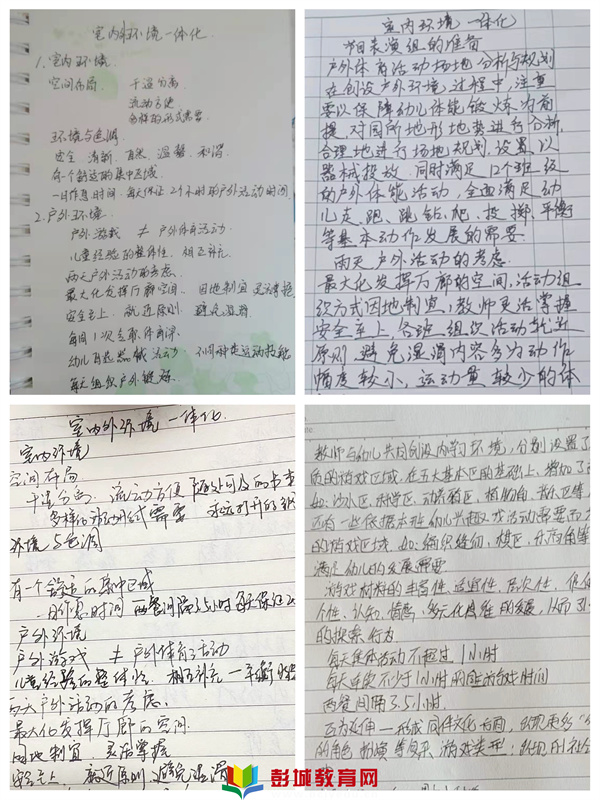 室内外环境一体化
1.室内环境
空间布局 干湿分离
流动方便
多样的形式需要
环境与色调
安全 清新 自然 温馨 和谐
有一个舒适的集中区域
一日作息时间 每天保证2个小时的户外活动时间
2.户外环境
户外游戏 ≠ 户外体育活动
儿童经验的整体性 相互补充
雨天户外活动的考虑
最大化发挥厅廊空间 因地制宜 灵活掌握
安全至上 就近原则 避免湿滑
每天组织户外锻炼
室内环境一体化
节目表演组的准备
户外体育活动场地分析与规划
在创设户外环境过程中,注重
要以保障幼儿体能锻炼为前
提,对园所地形地势进行分析,
合理地进行场地规划、设置,以
器械投放,同时满足12个班级
的户外体能活动,全面满足幼
儿走、跑、跳、钻、爬、投掷、平衡
等基本动作发展的需要.
雨天户外活动的考虑.
最大化发挥厅廊的空间,活动组
织方式因地制宜,教师灵活掌握
安全至上,各班组织活动就近
原则,避免湿滑内容多为动作
幅度较小,运动量较少的体
室内外环境一体化
室内环境
空间布局
干湿分离 流动方便 随处可及的书本
多样化活动形式需要
环境与色调
有一个舒适的集中区域
一日作息时间 两餐间隔3.5小时 每天保证2
户外环境
户外游戏 ≠ 户外体育活动
儿童经验的整体性 相互补充
雨天户外活动的考虑
最大化发挥厅廊的空间
因地制宜 灵活掌握
安全至上 就近原则 避免湿滑
教师与幼儿共同创设内学习环境,分别设置了
质的游戏区域,在五大基本区的基础上,增加了
如:沙水区、科学区、动植物区、植物角、音乐区等
还有一些依据本班幼儿兴趣或活动需要而
的游戏区域.如:编织缝纫、棋区、
满足幼儿的发展需要
游戏材料的丰富性、适宜性、层次性
个性、认知、情感、多元化思维的发展,从而
的探索行为
每天集体活动不超过1小时
每天连续不少于1小时的 游戏时间
两餐间隔3.5小时.
的角色扮演等
彭城教育网